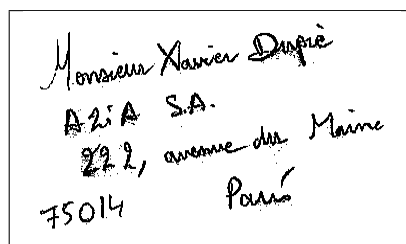 Monsieur Xavier Dupré
A2iA S.A.
222, avenue du Maine
75014 Paris